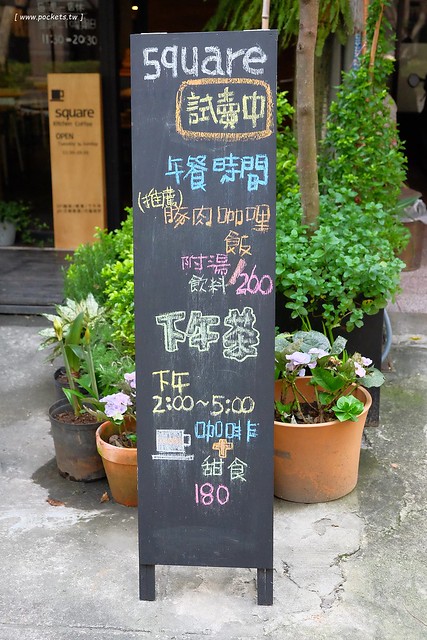 [ www.pockets.tw ]
11:30 20:30
square
kitchen Coffee
OPEN
square
試賣中
午餐時間
(推薦)豚肉咖哩
飯
附湯
飲料/260
下午茶
下午
2:00~5:00
咖啡
+
甜食
180